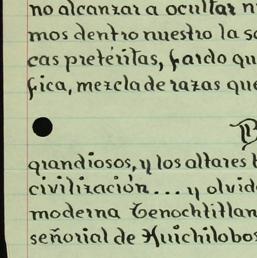 no alcanzar a ocultar n
mos dentro nuestro la sa
cas pretéritas, fardo qu
fica, mezcla de razas que
grandiosos, y los altares t
civilización... y olvid
moderna Tenochtitlan
señorial de Huichilobos